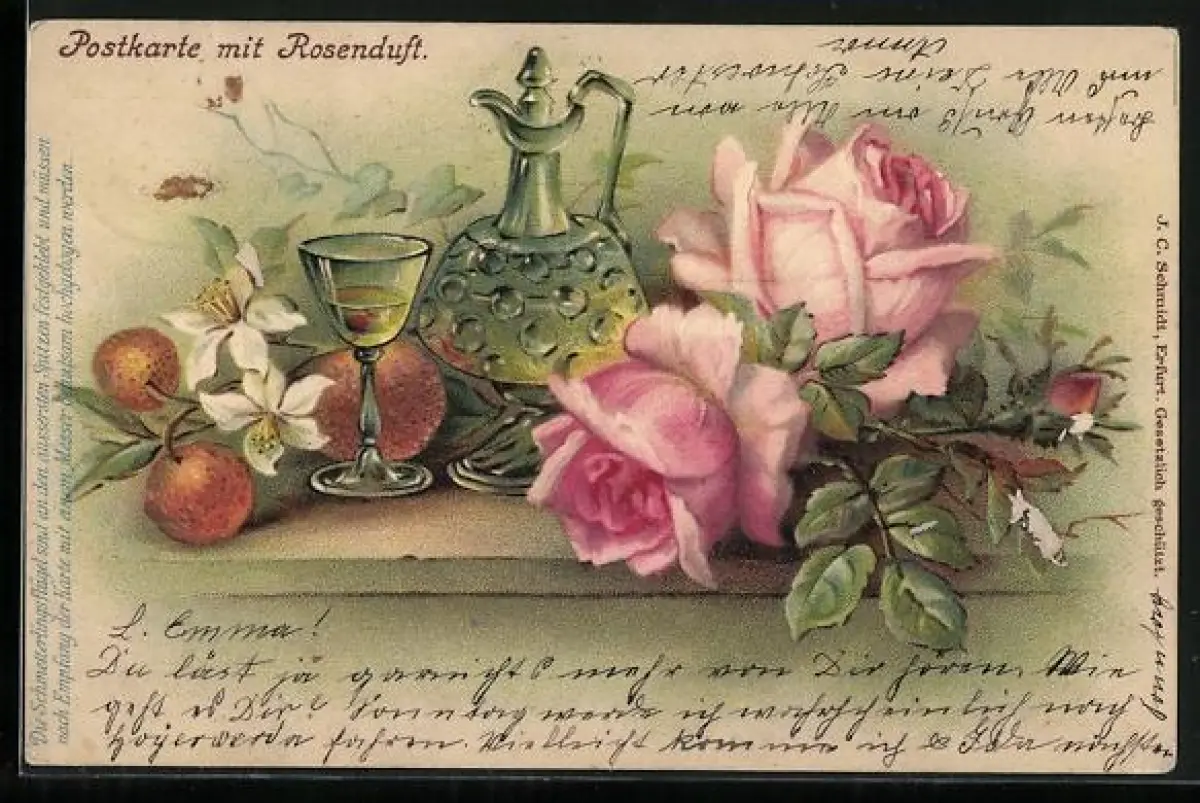 Postkarte mit Rosenduft.
Die Schmetterlingsflügel sind an den äusserden Spitzen festgeklebt und müssen
nach Empfang der Karte mit einem Messer behutsam hochgebogen werden
J. C. Schmidt, Erfurt. Gesetzlich geschützt.
L. Emma!
Du läst ja garnichts mehr von Dir hören. Wie
geht es Dir? Sonntag werde ich wahrscheinlich nach
Hoyerwerda fahren. Vielleicht komme ich & Ida nächsten
Gruß an Alle von
und Alle Deine Schwester
Anna